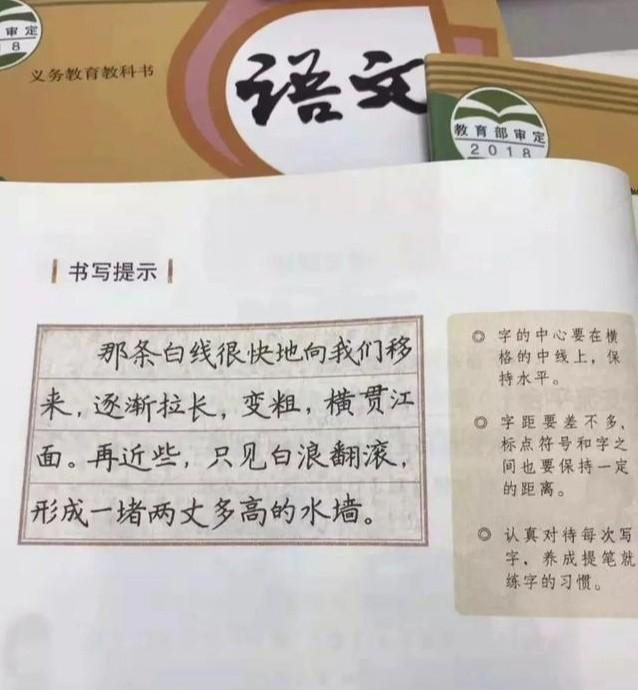 审定
18
义务教育教科书
语文
教育部审定
2018
书写提示
那条白线很快地向我们移
来，逐渐拉长，变粗，横贯江
面。再近些，只见白浪翻滚，
形成一堵两丈多高的水墙。
◎ 字的中心要在横
格的中线上，保
持水平。
◎ 字距要差不多，
标点符号和字之
间也要保持一定
的距离。
◎ 认真对待每次写
字，养成提笔就
练字的习惯。